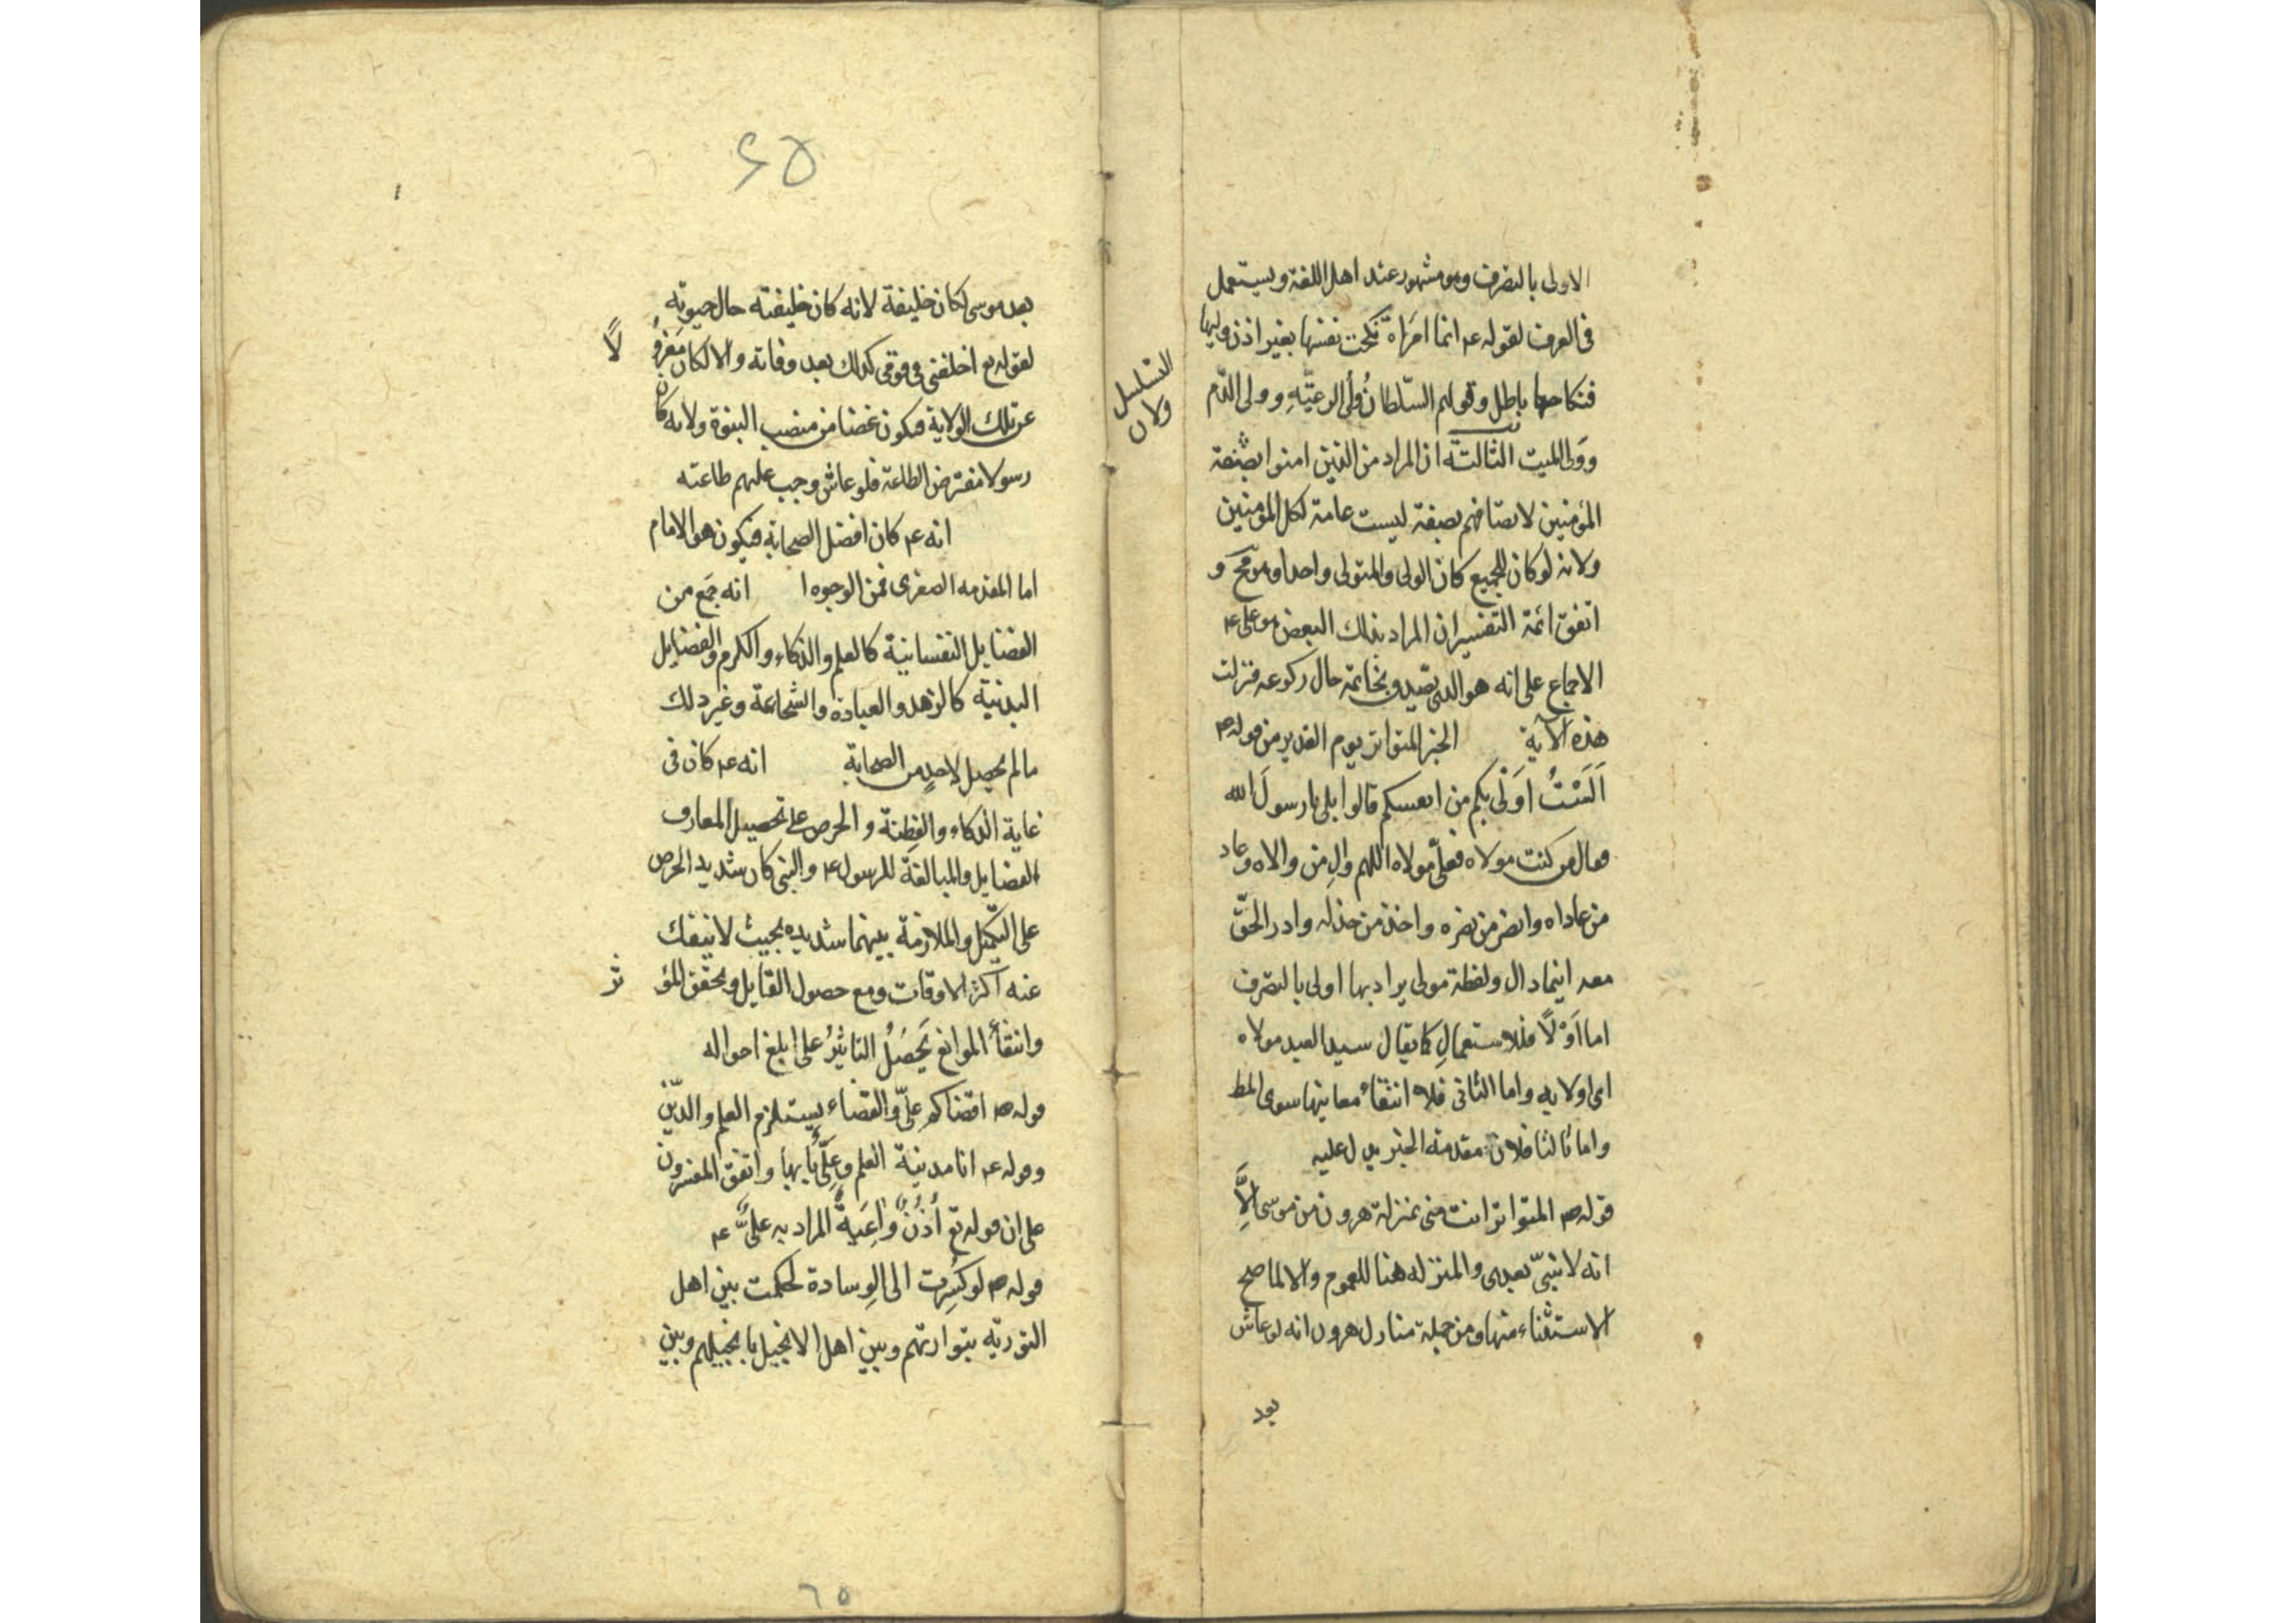 الاولى بالتصرف وهو مشهور عند اهل اللغة ويستعمل
فى العرف لقوله ع انما امرَاة نكحت نفسها بغير اذن وليها
فنكاحها باطل وقولهم السّلطانُ ولىُّ الرعيّةِ وولى الدّم
وولى الميت الثالثة ان المراد من الذين امنوا بصنعة
المؤمنين لاتصافهم بصفة ليست عامة لكل المؤمنين
ولانه لو كان للجميع كان الولى والمتولى واحدا وهو مح و
اتفق ائمة التفسير ان المراد بذلك البعض هو على ع
الاجماع على انه هو الذى تصدق بخاتمه حال ركوعه فنزلت
هذه الآية الخبر المتواتر يوم الغدير من قوله ص
اَلَسْتُ اَوْلى بكم من انفسكم قالوا بلى يا رسولَ الله
فقال من كنت مولاه فعلىّ مولاه اللهم والِ من والاه وعاد
من عاداه وانصر من نصره واخذل من خذله وادر الحقّ
معه اينما دار ولفظة مولى يراد بها اولى بالتصرف
اما اَوْلًا فللاستعمالِ كما يقال سيد العبد مولاه
اى اولا به واما الثانى فلا انتفاء معانيها سوى المط
واما ثالثا فلان مقدمة الخبر يدل عليه
قوله ص المتواتر انت منى بمنزلة هرون من موسى اِلَّا
انه لا نبىّ بعدى والمنزله هنا للعموم والا لما صح
الاستثناء منها ومن جملة منازل هرون انه لو عاش
بعد
التسلسل
ولان
٤٥
بعد موسى لكان خليفة لانه كان خليفته حال حيوته
لقوله تع اخلفنى فى قومى كذلك بعد وفاته والا لكان مَعْزُو
لًا
عن تلك الولاية فيكون غضا من منصب النبوة ولانه كان
رسولا مفترض الطاعة فلو عاش وجب عليهم طاعته
انه ع كان افضل الصحابة فيكون هو الامام
اما المقدمه الصغرى فمن الوجوه ا انه جَمَع من
الفضايل النفسانية كالعلم والذكاء والكرم والفضايل
البدنية كالزهد والعبادة والشجاعة وغير ذلك
ما لم يحصل لاحدٍ من الصحابة انه ع كان فى
غاية الذكاء والفِطنة والحرص على تحصيل المعارف
الفضايل والمبالغة للرسول ع والنبى كان شديد الحرص
على التكميل والملازمة بينهما شديده بحيث لا ينفك
عنه اكثر الاوقات ومع حصول القايل وتحقق المؤ
ثر
وانتفاء الموانع يَحصُلُ التاثيرُ على ابلغ احواله
قوله ص اقضاكم علىّ والقضاء يستلزم العلم والدّين
وقوله ع انا مدينة العلم وعلىٌّ بابها واتفق المفسرون
على ان قوله تع أُذُنٌ واعِيَةٌ المراد به علىٌّ ع
قوله ص لو كُسِرت الى الوِسادة لحكمت بين اهل
التوريه بتوارتهم وبين اهل الانجيل بانجيلهم وبين
٦٥